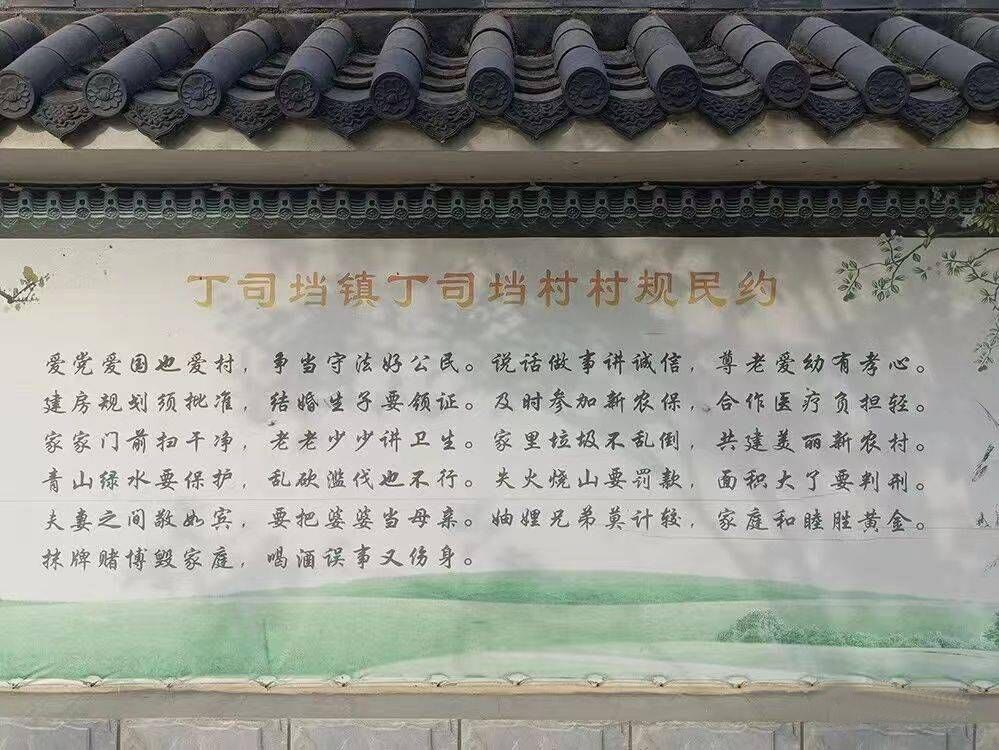 丁司垱镇丁司垱村村规民约
爱党爱国也爱村，争当守法好公民。说话做事讲诚信，尊老爱幼有孝心。
建房规划须批准，结婚生子要领证。及时参加新农保，合作医疗负担轻。
家家门前扫干净，老老少少讲卫生。家里垃圾不乱倒，共建美丽新农村。
青山绿水要保护，乱砍滥伐也不行。失火烧山要罚款，面积大了要判刑。
夫妻之间敬如宾，要把婆婆当母亲。妯娌兄弟莫计较，家庭和睦胜黄金。
抹牌赌博毁家庭，喝酒误事又伤身。